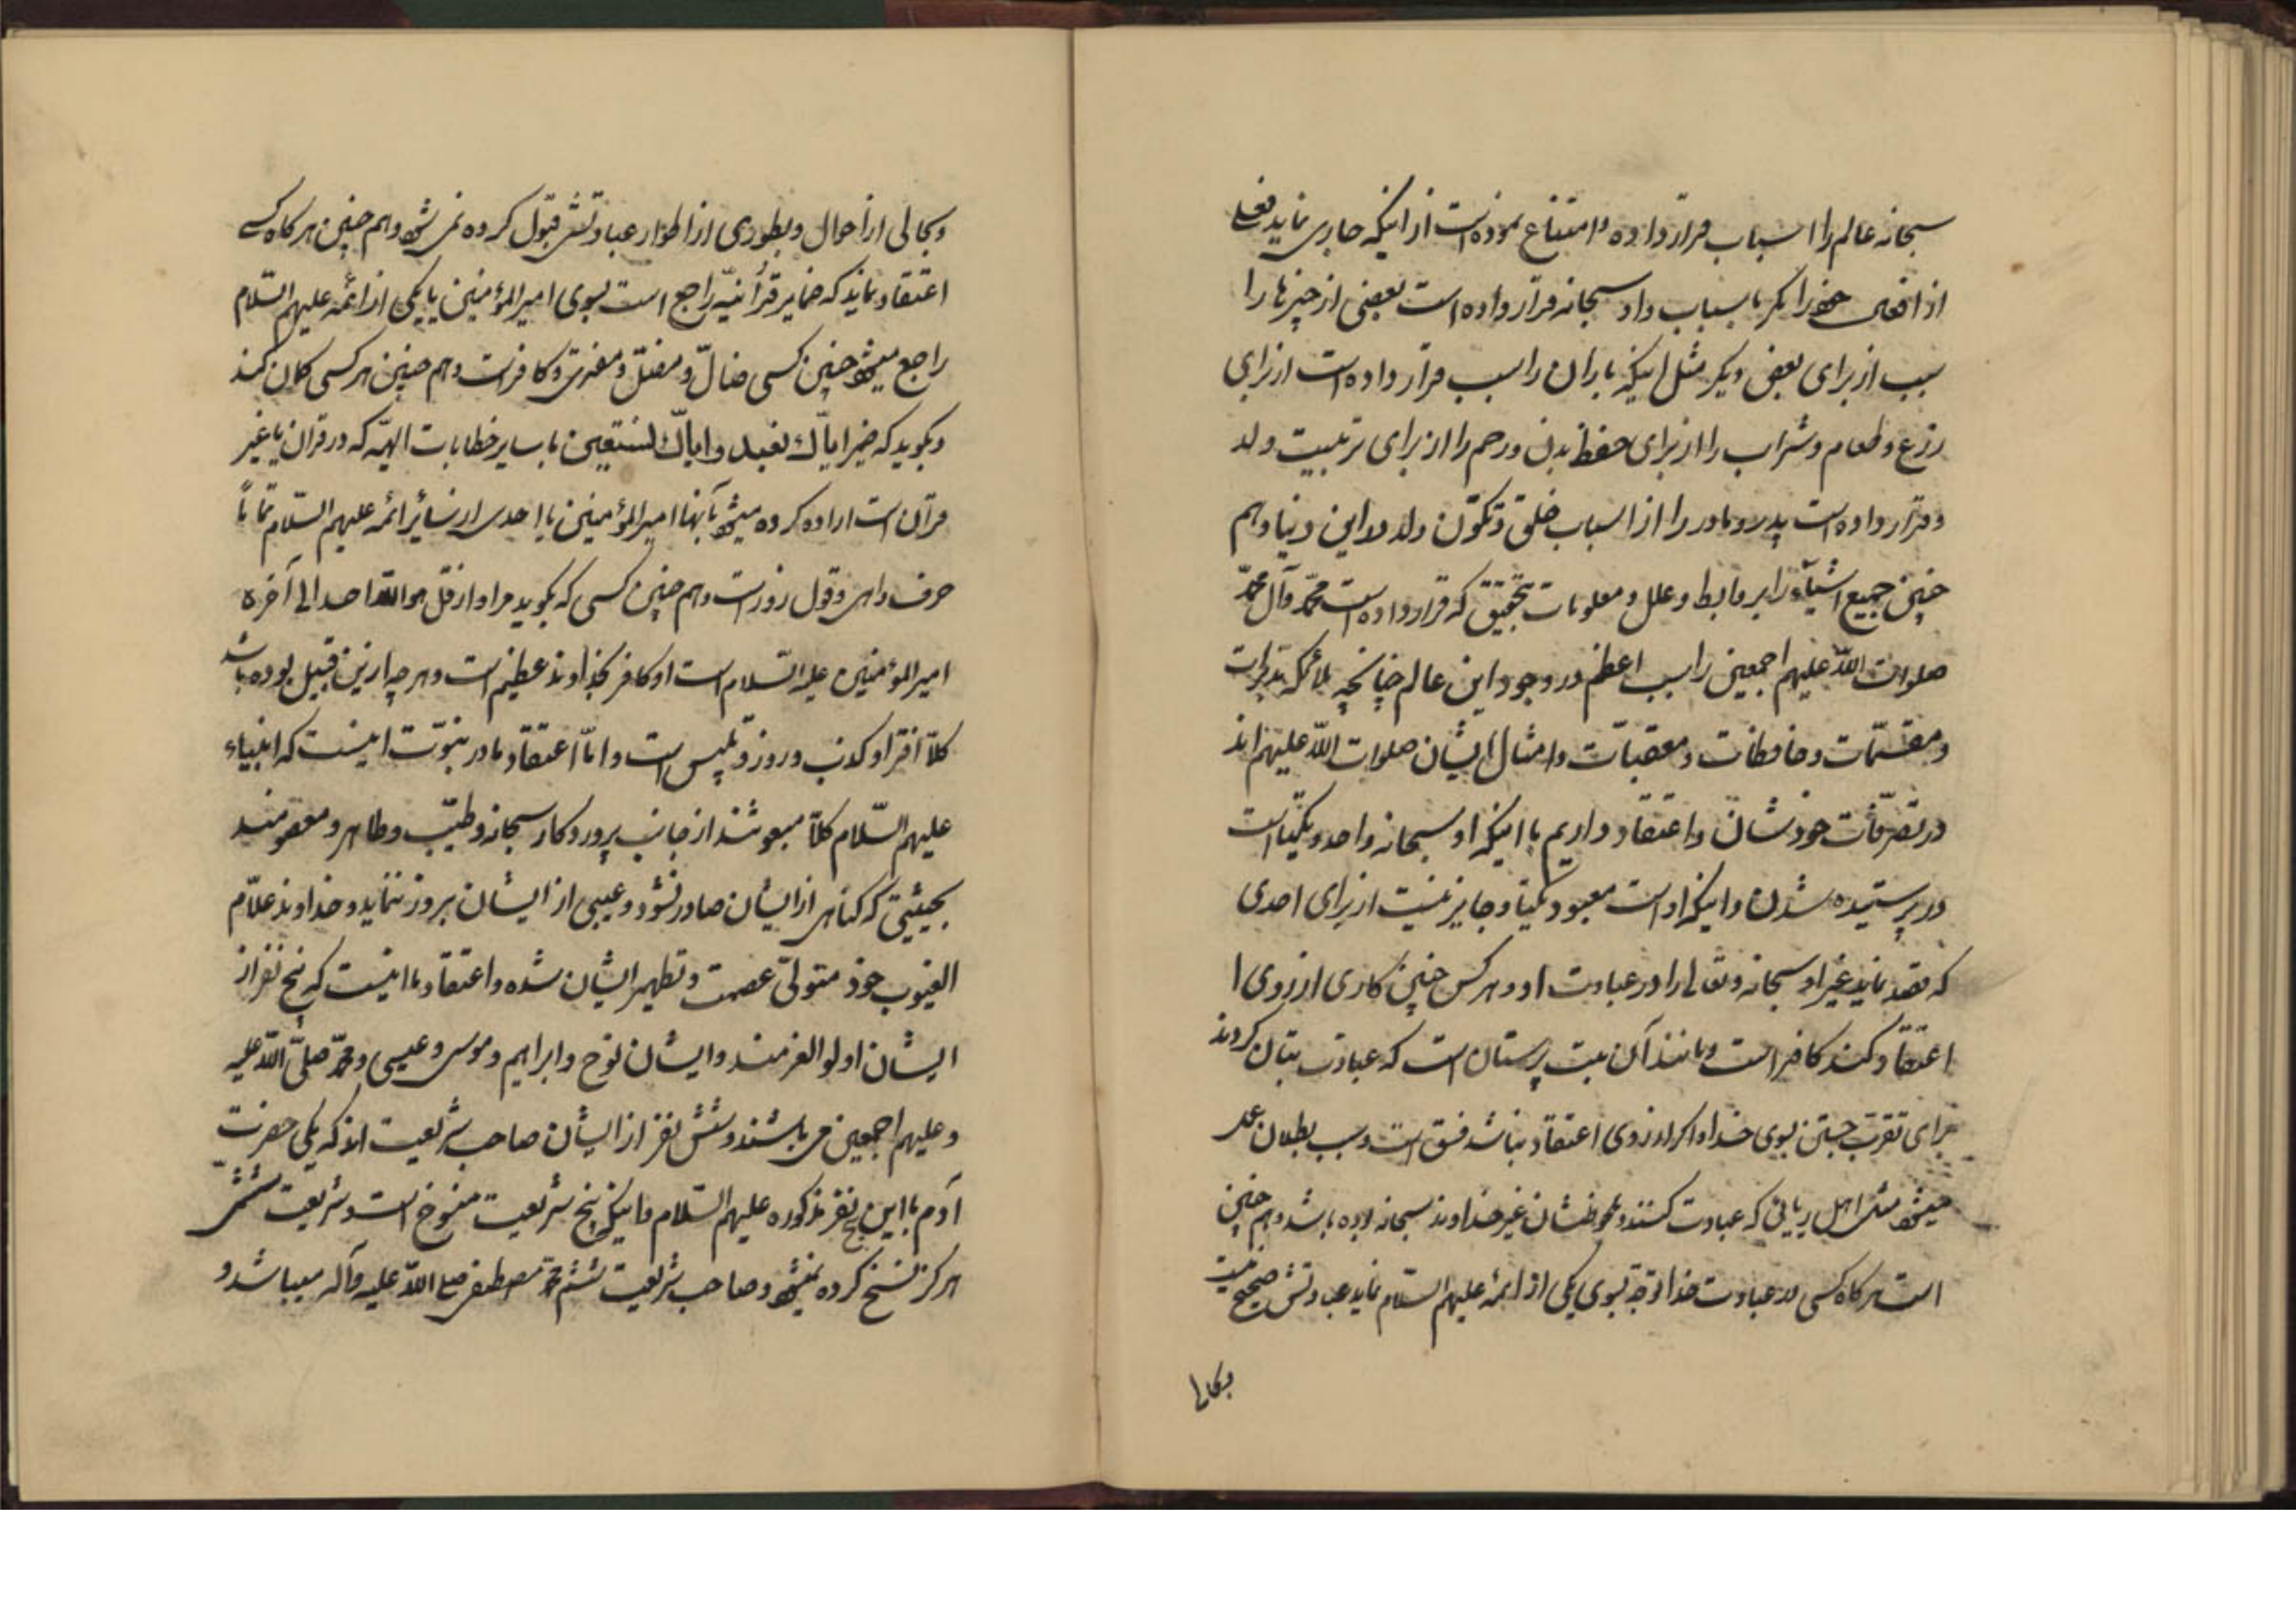 سبحانه عالم را اسباب قرار داده و امتناع نموده است از اینکه جاری نماید فعلی
از افعال خود را مگر باسباب و او سبحانه قرار داده است بعضی از چیزها را
سبب از برای بعض دیگر مثل اینکه باران را سبب قرار داده است از برای
زرع و طعام و شراب را از برای حفظ بدن و رحم را از برای تربیت ولد
و قرار داده است پدر و مادر را از اسباب خلق و تکوّن ولد در این دنیا و هم
چنین جمیع اشیآء را بروابط و علل و معلومات بتحقیق که قرار داده است محمّد و آل محمّد
صلوات اللّه علیهم اجمعین را سبب اعظم در وجود این عالم چنانچه ملائکه مدبرات
و مقسّمات و حافظات و معقبات و امثال ایشان صلوات اللّه علیهم اند
در تصرّفات خودشان و اعتقاد داریم باینکه او سبحانه واحد و یکتا است
در پرستیده شدن و اینکه او است معبود یکتا و جایز نیست از برای احدی
که قصد نماید غیر او سبحانه و تعالی را در عبادت او و هر کس چنین کاری از روی ا
اعتقاد کند کافر است و مانند آن بت پرستان است که عبادت بتان کردند
برای تقرب جستن بسوی خدا و اگر از روی اعتقاد نباشد فسق است و سبب بطلان عمل
میشود مثل اهل ریائی که عبادت کنند و ملحوظشان غیر خداوند سبحانه بوده باشد و هم چنین
است هر گاه کسی در عبادت خدا توجّه بسوی یکی از ائمّه علیهم السّلام نماید عبادتش صحیح نیست
وبحالی
وبحالی از احوال و بطوری از اطوار عبادتش قبول کرده نمی شود و هم چنین هر گاه کسی
اعتقاد نماید که ضمایر قرآنیّه راجع است بسوی امیرالمؤمنین یا بیکی از ائمّه علیهم السّلام
راجع میشود چنین کسی ضالّ و مضلّ و مفتری و کافر است و هم چنین هر کسی گمان کند
و بگوید که ضمیر ایاّک نعبد و ایاّک نستعین یا سایر خطابات الهیّه که در قران یا غیر
قرآن است اراده کرده میشود بآنها امیرالمؤمنین یا احدی از سائر ائمّه علیهم السّلام تماماً
حرف واهی و قول زور است و هم چنین کسی که بگوید مراد از قل هو اللّه احد الی آخره
امیرالمؤمنین علیه السّلام است او کافر بخداوند عظیم است و هر چه از این قبیل بوده باشد
کلّاً افترا و کذب و زور و تلبیس است و امّا اعتقاد ما در نبوّت اینست که انبیاء
علیهم السّلام کلّاً مبعوثند از جانب پروردگار سبحانه و طیّب و طاهر و معصومند
بحیثیتی که گناهی از ایشان صادر نشود و عیبی از ایشان بروز ننماید و خداوند علّام
الغیوب خود متولّی عصمت و تطهیر ایشان شده و اعتقاد ما اینست که پنج نفر از
ایشان اولوالعزمند و ایشان نوح و ابراهیم و موسی و عیسی و محمّد صلّی اللّه علیه
و علیهم اجمعین می باشند و شش نفر از ایشان صاحب شریعت اند که یکی حضرت
آدم با این پنج نفر مذکوره علیهم السّلام و اینکه پنج شریعت منسوخ است و شریعت ششمی
هرگز نسخ کرده نمیشود و صاحب شریعت ششم محمّد مصطفی صلی اللّه علیه و آله میباشد و